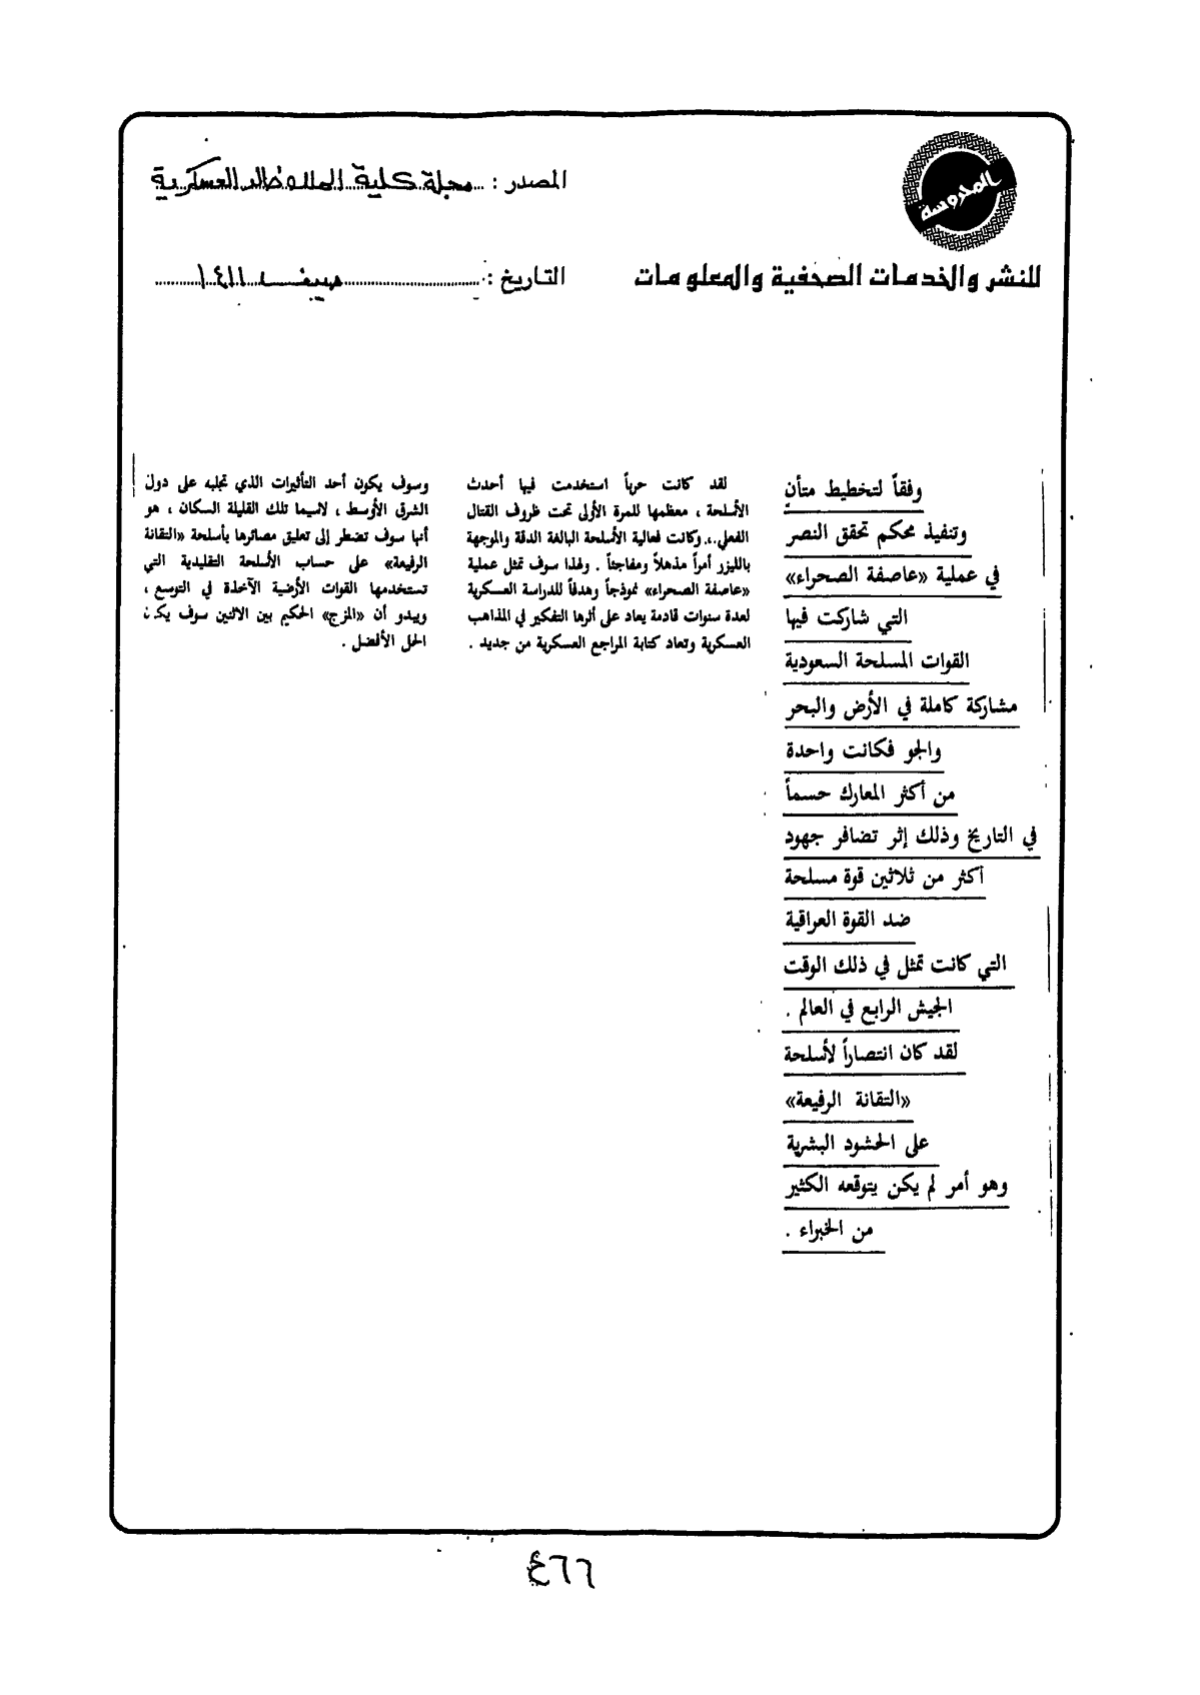 المحروسة
للنشر والخدمات الصحفية والمعلومات
المصدر : مجلة كلية الملك خالد العسكرية
التاريخ : صيف ١٤١١
وفقاً لتخطيط متأنٍ
وتنفيذ محكم تحقق النصر
في عملية «عاصفة الصحراء»
التي شاركت فيها
القوات المسلحة السعودية
مشاركة كاملة في الأرض والبحر
والجو فكانت واحدة
من أكثر المعارك حسماً
في التاريخ وذلك إثر تضافر جهود
أكثر من ثلاثين قوة مسلحة
ضد القوة العراقية
التي كانت تمثل في ذلك الوقت
الجيش الرابع في العالم .
لقد كان انتصاراً لأسلحة
«التقانة الرفيعة»
على الحشود البشرية
وهو أمر لم يكن يتوقعه الكثير
من الخبراء .
لقد كانت حرباً استخدمت فيها أحدث
الأسلحة ، معظمها للمرة الأولى تحت ظروف القتال
الفعلي.، وكانت فعالية الأسلحة البالغة الدقة والموجهة
بالليزر أمراً مذهلاً ومفاجئاً . ولهذا سوف تمثل عملية
«عاصفة الصحراء» نموذجاً وهدفاً للدراسة العسكرية
لعدة سنوات قادمة يعاد على أثرها التفكير في المذاهب
العسكرية وتعاد كتابة المراجع العسكرية من جديد .
وسوف يكون أحد التأثيرات الذي تجلبه على دول
الشرق الأوسط ، لاسيما تلك القليلة السكان ، هو
أنها سوف تضطر إلى تعليق مصائرها بأسلحة «التقانة
الرفيعة» على حساب الأسلحة التقليدية التي
تستخدمها القوات الأرضية الآخذة في التوسع ،
ويبدو أن «المزج» الحكيم بين الاثنين سوف يكون
الحل الأفضل .
٤٦٦